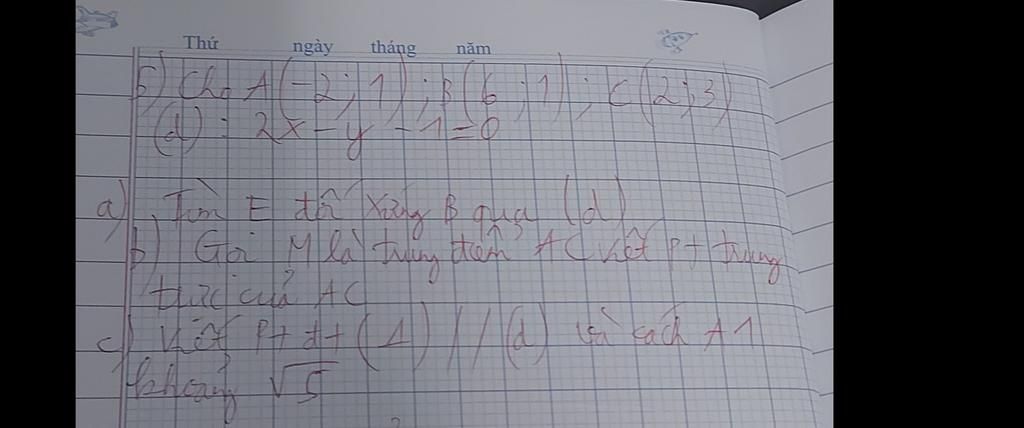 Thứ ngày tháng năm
5) Cho A(-2;1); B(6;1); C(2;3)
(d): 2x-y-1=0
a) Tìm E đối xứng B qua (d)
b) Gọi M là trung điểm AC viết pt trung
trực của AC
c) Viết pt đt (Δ) // (d) và cách A 1
khoảng √5